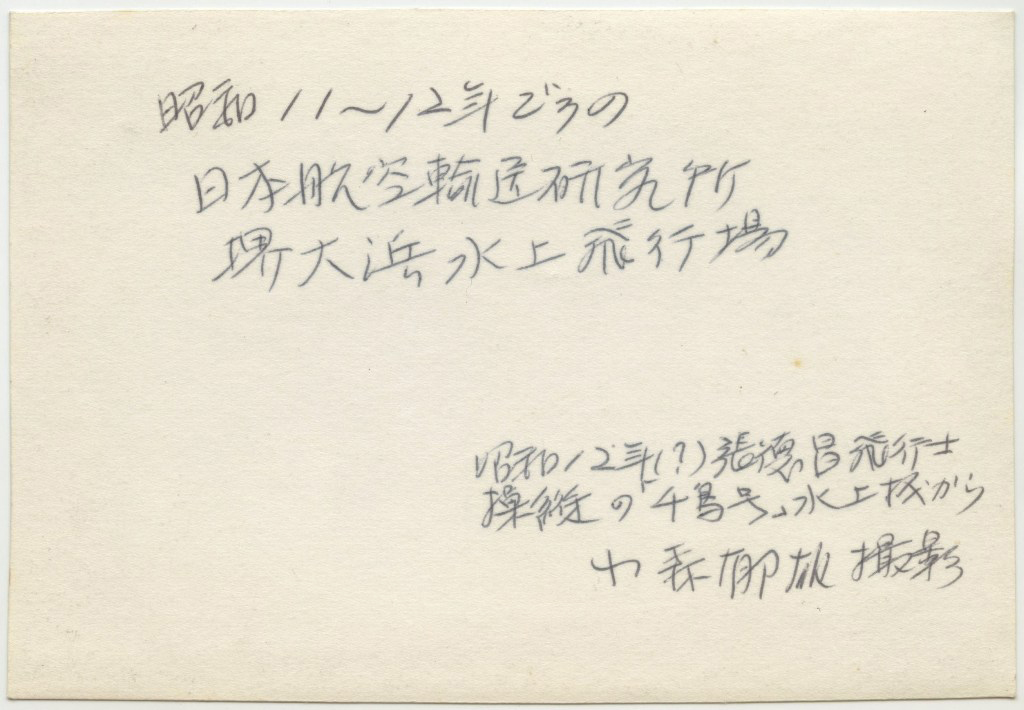 昭和11〜12年ごろの
日本航空輸送研究所
堺大浜水上飛行場
昭和12年(?)張徳昌飛行士
操縦の「千鳥号」水上机から
小森郁雄撮影